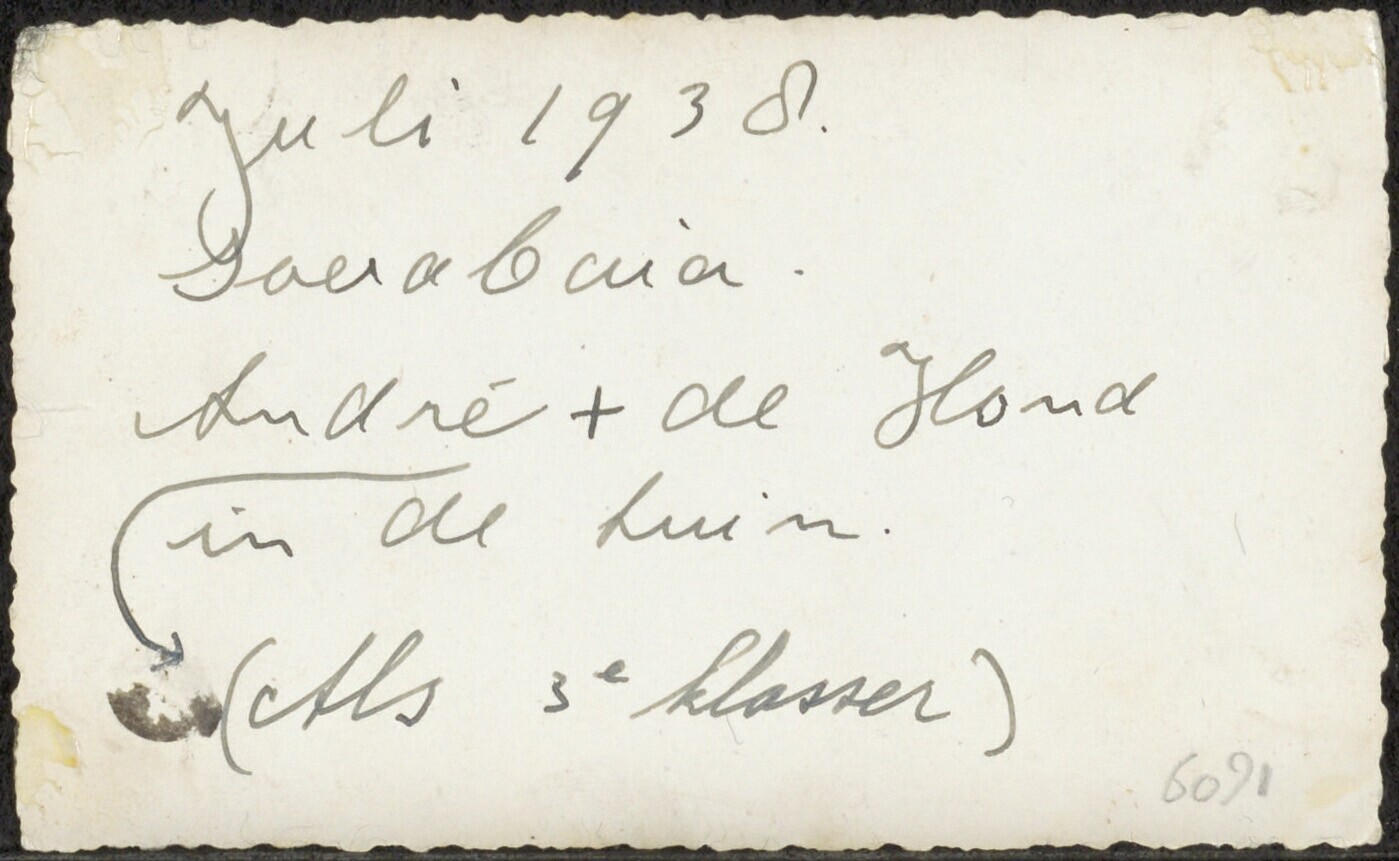 Juli 1938.
Soerabaia.
André + de Hond
in de tuin.
(Als 3e klasser)
6091